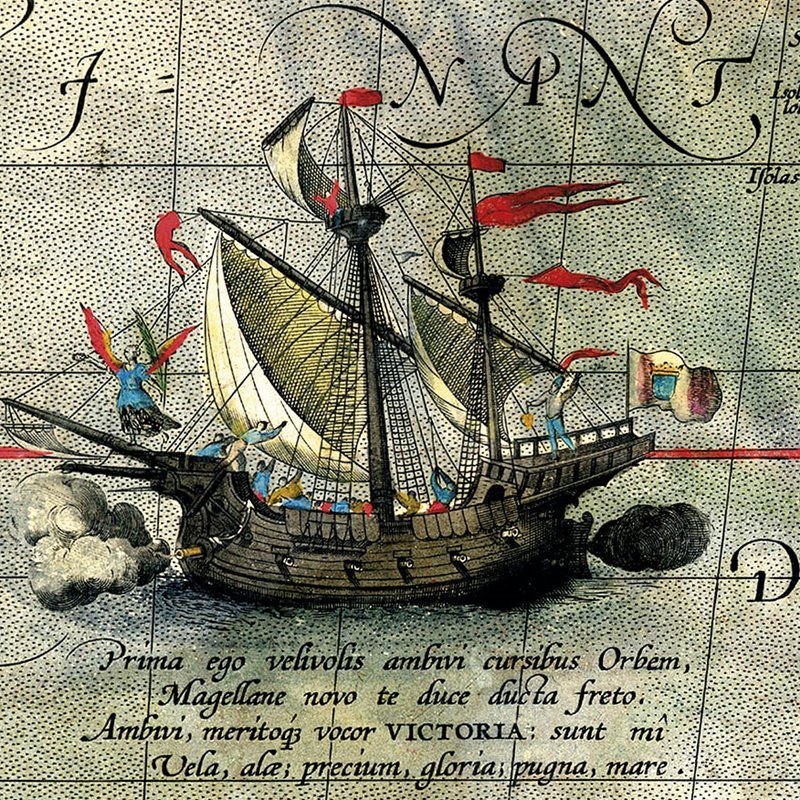 I = NANT
Isolas
D
Prima ego velivolis ambivi cursibus Orbem,
Magellane novo te duce ducta freto.
Ambivi, meritoqꝫ vocor VICTORIA: sunt mî
Vela, alæ; precium, gloria; pugna, mare.